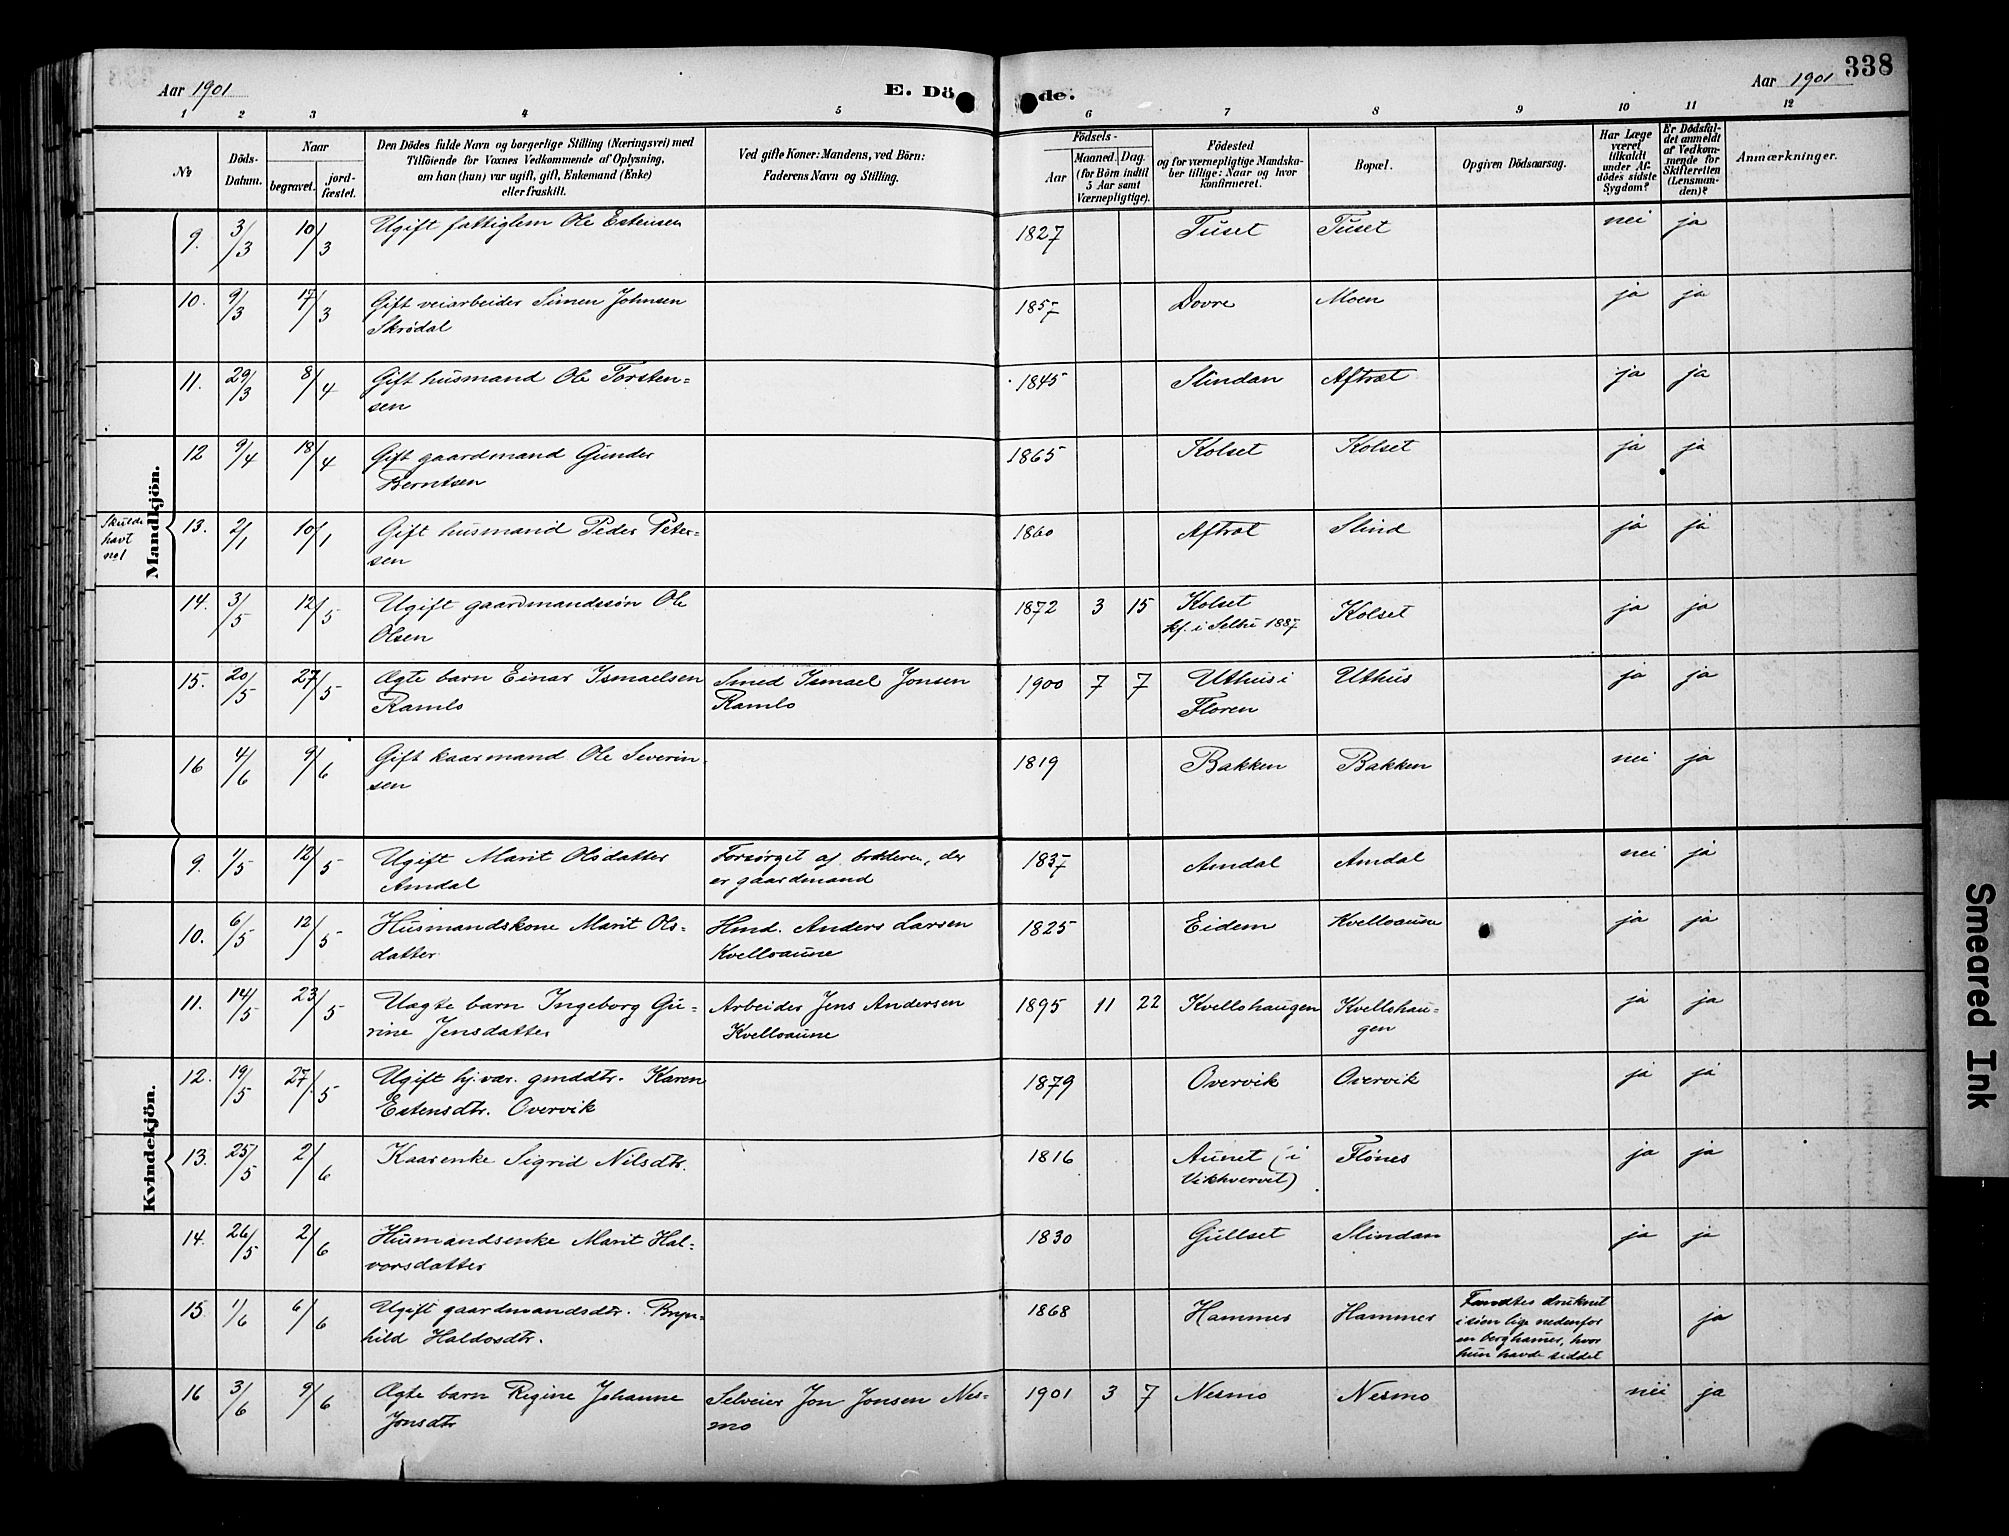 Aar 1901 E. Dö de. Aar 1901 338
1 2 3 4 5 6 7 8 9 10 11 12
No
Döds-Datum.
Naar
begravet.
jord-fæstet.
Den Dödes fulde Navn og borgerlige Stilling (Næringsvei) med
Tilföiende for Voxnes Vedkommende af Oplysning,
om han (hun) var ugift, gift, Enkemand (Enke)
eller fraskilt.
Ved gifte Koner: Mandens, ved Börn:
Faderens Navn og Stilling.
Födsels-
Aar
Maaned. Dag.
(for Börn indtil
5 Aar samt
Værnepligtige).
Födested
og for værnepligtige Mandska-
ber tillige: Naar og hvor
konfirmeret.
Bopæl.
Opgiven Dödsaarsag.
Har Læge
været
tilkaldt
under Af-
dödes sidste
Sygdom?
Er Dödsfal-
det anmeldt
af Vedkom-
mende for
Skifteretten
(Lensman-
den)?
Anmærkninger.
Mandkjön.
9. 3/3 10/3 Ugift fattiglem Ole Estensen 1827 Tuset Tuset nei ja
10. 9/3 17/3 Gift veiarbeider Simen Johnsen
Skrødal 1857 Dovre Moen ja ja
11. 29/3 8/4 Gift husmand Ole Torsten=
sen 1845 Slindan Aftret ja ja
12 9/4 18/4 Gift gaardmand Gunder
Berntsen 1865 Kolset Kolset ja ja
Skulde
havt
no 1
13. 2/1 10/1 Gift husmand Peder Peter-
sen 1860 Aftret Slind ja ja
14. 3/5 12/5 Ugift gaardmandssøn Ole
Olsen 1872 3 15 Kolset
kf. i Selbu 1887 Kolset ja ja
15. 20/5 27/5 Ægte barn Einar Ismaelsen
Ramlo Smed Ismael Jonsen
Ramlo 1900 7 7 Uthus i
Floren Uthus ja ja
16 4/6 9/6 Gift kaarmand Ole Severin-
sen 1819 Bakken Bakken nei ja
Kvindekjön.
9. 1/5 12/5 Ugift Marit Olsdatter
Amdal Forsørget af broderen, der
er gaardmand 1837 Amdal Amdal nei ja
10. 6/5 12/5 Husmandskone Marit Ols-
datter Hmd. Anders Larsen
Kvelloaune 1825 Eidem Kvelloaune ja ja
11. 14/5 23/5 Uægte barn Ingeborg Gu-
rine Jensdatter Arbeider Jens Andersen
Kvelloaune 1895 11 22 Kvellohaugen Kvellohau-
gen ja ja
12. 19/5 27/5 Ugift hj.vær. gmddtr. Karen
Estensdtr. Overvik 1879 Overvik Overvik ja ja
13. 25/5 2/6 Kaarenke Sigrid Nilsdtr. 1816 Aunet (i
Vikhvervet) Flønes ja ja
14. 26/5 2/6 Husmandsenke Marit Hal-
vorsdatter 1830 Gullset Slindan ja ja
15. 1/6 6/6 Ugift gaardmandsdtr. Bryn-
hild Haldosdtr. 1868 Hammer Hammer Fandtes druknet
i sion lige nedenfor
en berghamer, hvor
hun havde siddet ja
16 3/6 9/6 Ægte barn Regine Johanne
Jonsdtr Selveier Jon Jonsen Nes-
mo 1901 3 7 Nesmo Nesmo nei ja
Smeared Ink